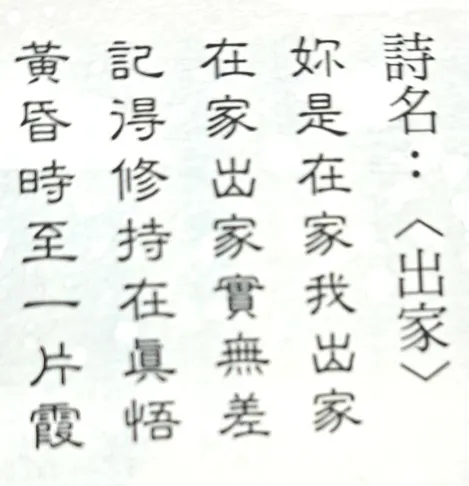 詩名：〈出家〉
妳是在家我出家
在家出家實無差
記得修持在真悟
黃昏時至一片霞